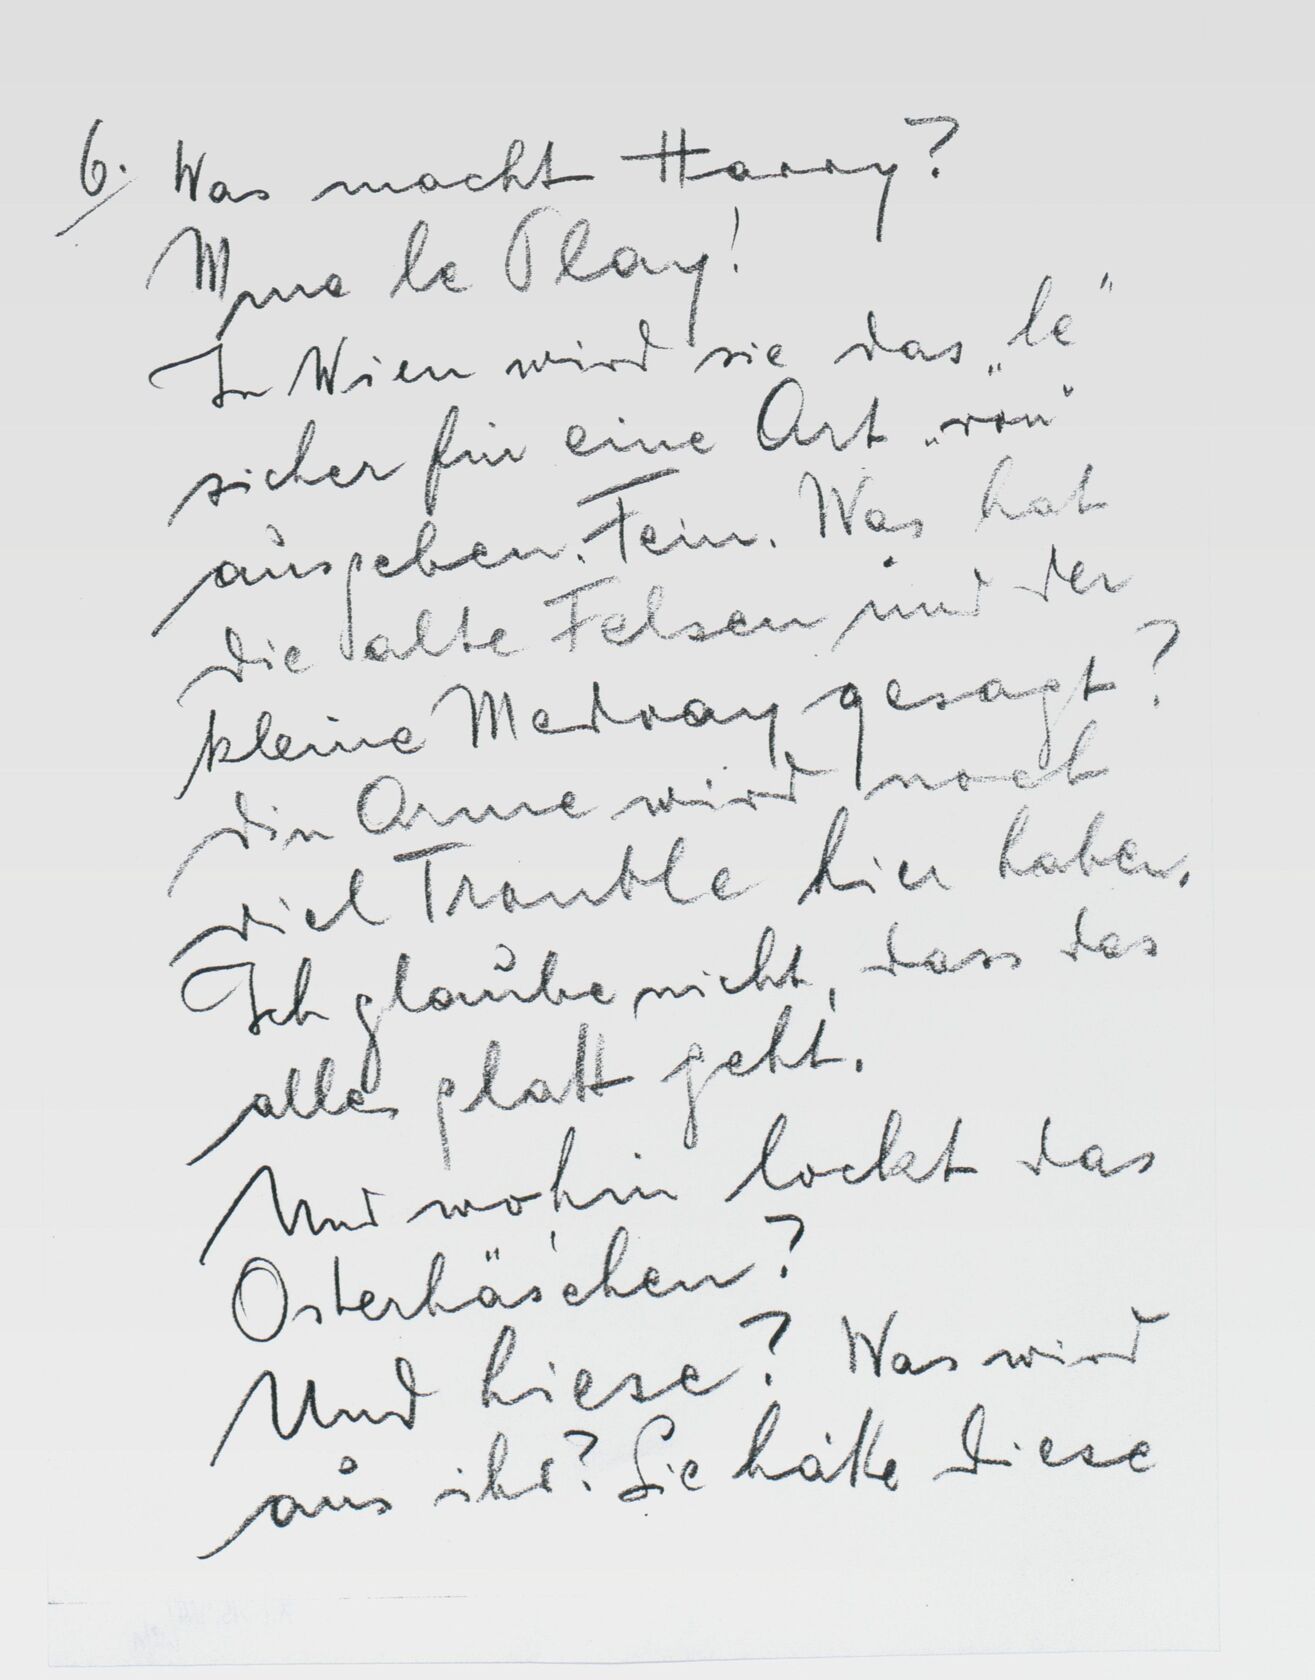 6. Was macht Harry?
Mme le Play!
In Wien wird sie das „le"
sicher für eine Art „von"
ausgeben. Fein. Was hat
die alte Felsen und der
kleine Medray gesagt?
die Arme wird noch
viel Trouble hier haben.
Ich glaube nicht, dass das
alles glatt geht.
Und wohin lockt das
Osterhäschen?
Und hiese? Was wird
aus ihr? Sie hätte diese